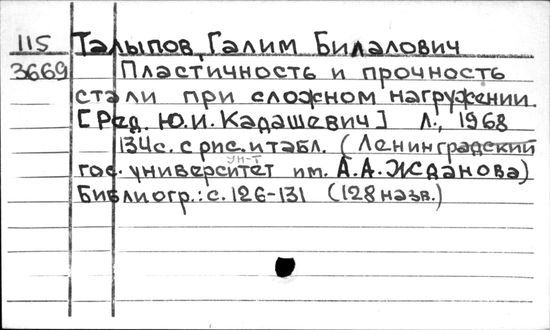 115 Талыпов, Галим Билалович
3669 Пластичность и прочность
стали при сложном нагружении.
[Ред. Ю.И. Кадашевич] Л., 1968
134с. с рис. и табл. (Ленинградский
ун-т
гос. университет им. А.А. Жданова)
Библиогр.: с. 126-131 (128 назв.)